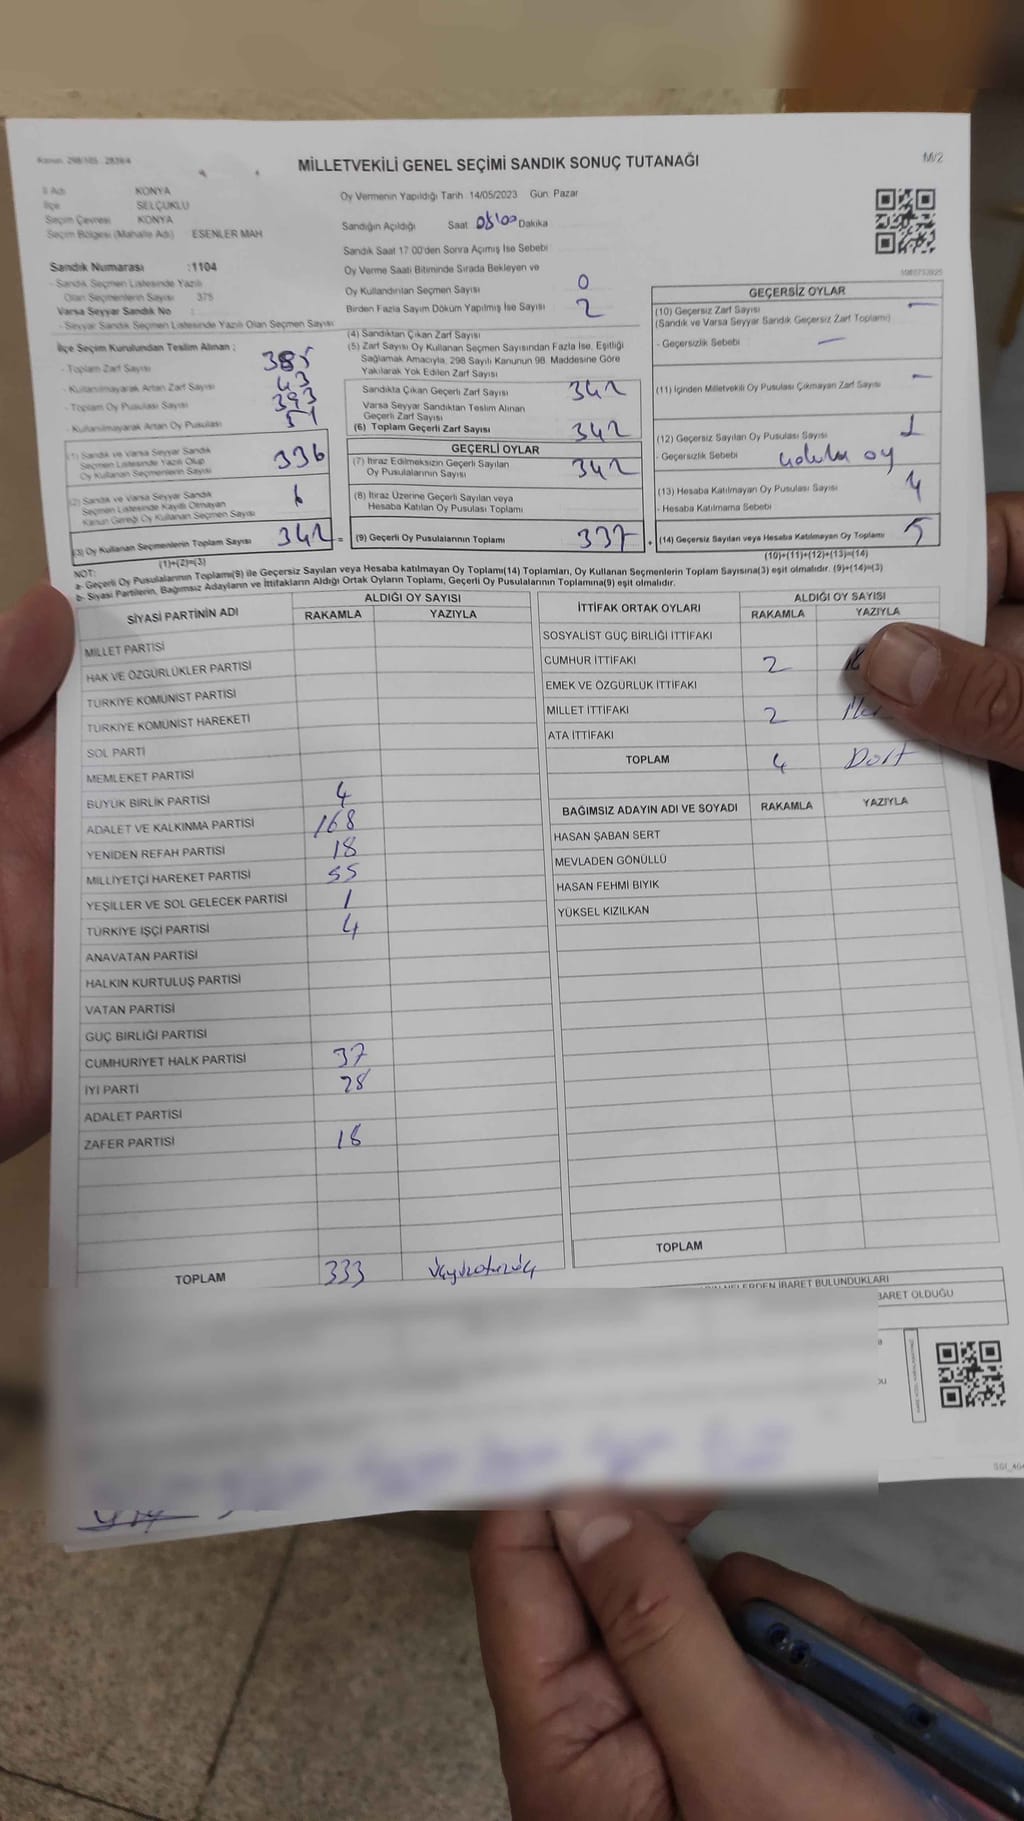 Kanun: 298/105 - 2839/4
MİLLETVEKİLİ GENEL SEÇİMİ SANDIK SONUÇ TUTANAĞI
M/2
İl Adı KONYA
İlçe SELÇUKLU
Seçim Çevresi KONYA
Seçim Bölgesi (Mahalle Adı) ESENLER MAH
Sandık Numarası :1104
- Sandık Seçmen Listesinde Yazılı
Olan Seçmenlerin Sayısı 375
Varsa Seyyar Sandık No :
- Seyyar Sandık Seçmen Listesinde Yazılı Olan Seçmen Sayısı
İlçe Seçim Kurulundan Teslim Alınan ;
- Toplam Zarf Sayısı 385
- Kullanılmayarak Artan Zarf Sayısı 43
- Toplam Oy Pusulası Sayısı 393
- Kullanılmayarak Artan Oy Pusulası 51
(1) Sandık ve Varsa Seyyar Sandık
Seçmen Listesinde Yazılı Olup
Oy Kullanan Seçmenlerin Sayısı 336
(2) Sandık ve Varsa Seyyar Sandık
Seçmen Listesinde Kayıtlı Olmayan
Kanun Gereği Oy Kullanan Seçmen Sayısı 6
(3) Oy Kullanan Seçmenlerin Toplam Sayısı 342 =
(1)+(2)=(3)
Oy Vermenin Yapıldığı Tarih 14/05/2023 Gün: Pazar
Sandığın Açıldığı Saat 08:00 Dakika
Sandık Saat 17:00'den Sonra Açımış İse Sebebi
Oy Verme Saati Bitiminde Sırada Bekleyen ve
Oy Kullandırılan Seçmen Sayısı 0
Birden Fazla Sayım Döküm Yapılmış İse Sayısı 2
(4) Sandıktan Çıkan Zarf Sayısı
(5) Zarf Sayısı Oy Kullanan Seçmen Sayısından Fazla İse, Eşitliği
Sağlamak Amacıyla, 298 Sayılı Kanunun 98. Maddesine Göre
Yakılarak Yok Edilen Zarf Sayısı
Sandıkta Çıkan Geçerli Zarf Sayısı 342
Varsa Seyyar Sandıktan Teslim Alınan
Geçerli Zarf Sayısı
(6) Toplam Geçerli Zarf Sayısı 342
GEÇERLİ OYLAR
(7) İtiraz Edilmeksizin Geçerli Sayılan
Oy Pusulalarının Sayısı 342
(8) İtiraz Üzerine Geçerli Sayılan veya
Hesaba Katılan Oy Pusulaları Toplamı
(9) Geçerli Oy Pusulalarının Toplamı 337 +
GEÇERSİZ OYLAR
(10) Geçersiz Zarf Sayısı —
(Sandık ve Varsa Seyyar Sandık Geçersiz Zarf Toplamı)
- Geçersizlik Sebebi —
(11) İçinden Milletvekili Oy Pusulası Çıkmayan Zarf Sayısı —
(12) Geçersiz Sayılan Oy Pusulası Sayısı 1
- Geçersizlik Sebebi oy
(13) Hesaba Katılmayan Oy Pusulası Sayısı 4
- Hesaba Katılmama Sebebi
(14) Geçersiz Sayılan veya Hesaba Katılmayan Oy Toplamı 5
(10)+(11)+(12)+(13)=(14)
NOT:
a- Geçerli Oy Pusulalarının Toplamı(9) ile Geçersiz Sayılan veya Hesaba katılmayan Oy Toplamı(14) Toplamları, Oy Kullanan Seçmenlerin Toplam Sayısına(3) eşit olmalıdır. (9)+(14)=(3)
b- Siyasi Partilerin, Bağımsız Adayların ve İttifakların Aldığı Ortak Oyların Toplamı, Geçerli Oy Pusulalarının Toplamına(9) eşit olmalıdır.
SİYASİ PARTİNİN ADI
ALDIĞI OY SAYISI
RAKAMLA YAZIYLA
MİLLET PARTİSİ
HAK VE ÖZGÜRLÜKLER PARTİSİ
TÜRKİYE KOMÜNİST PARTİSİ
TÜRKİYE KOMÜNİST HAREKETİ
SOL PARTİ
MEMLEKET PARTİSİ
BÜYÜK BİRLİK PARTİSİ 4
ADALET VE KALKINMA PARTİSİ 168
YENİDEN REFAH PARTİSİ 18
MİLLİYETÇİ HAREKET PARTİSİ 55
YEŞİLLER VE SOL GELECEK PARTİSİ 1
TÜRKİYE İŞÇİ PARTİSİ 4
ANAVATAN PARTİSİ
HALKIN KURTULUŞ PARTİSİ
VATAN PARTİSİ
GÜÇ BİRLİĞİ PARTİSİ
CUMHURİYET HALK PARTİSİ 37
İYİ PARTİ 28
ADALET PARTİSİ
ZAFER PARTİSİ 18
TOPLAM 333
İTTİFAK ORTAK OYLARI
ALDIĞI OY SAYISI
RAKAMLA YAZIYLA
SOSYALİST GÜÇ BİRLİĞİ İTTİFAKI
CUMHUR İTTİFAKI 2
EMEK VE ÖZGÜRLÜK İTTİFAKI
MİLLET İTTİFAKI 2
ATA İTTİFAKI
TOPLAM 4 Dört
BAĞIMSIZ ADAYIN ADI VE SOYADI RAKAMLA YAZIYLA
HASAN ŞABAN SERT
MEVLADEN GÖNÜLLÜ
HASAN FEHMİ BIYIK
YÜKSEL KIZILKAN
TOPLAM
NELERDEN İBARET BULUNDUKLARI
BARET OLDUĞU